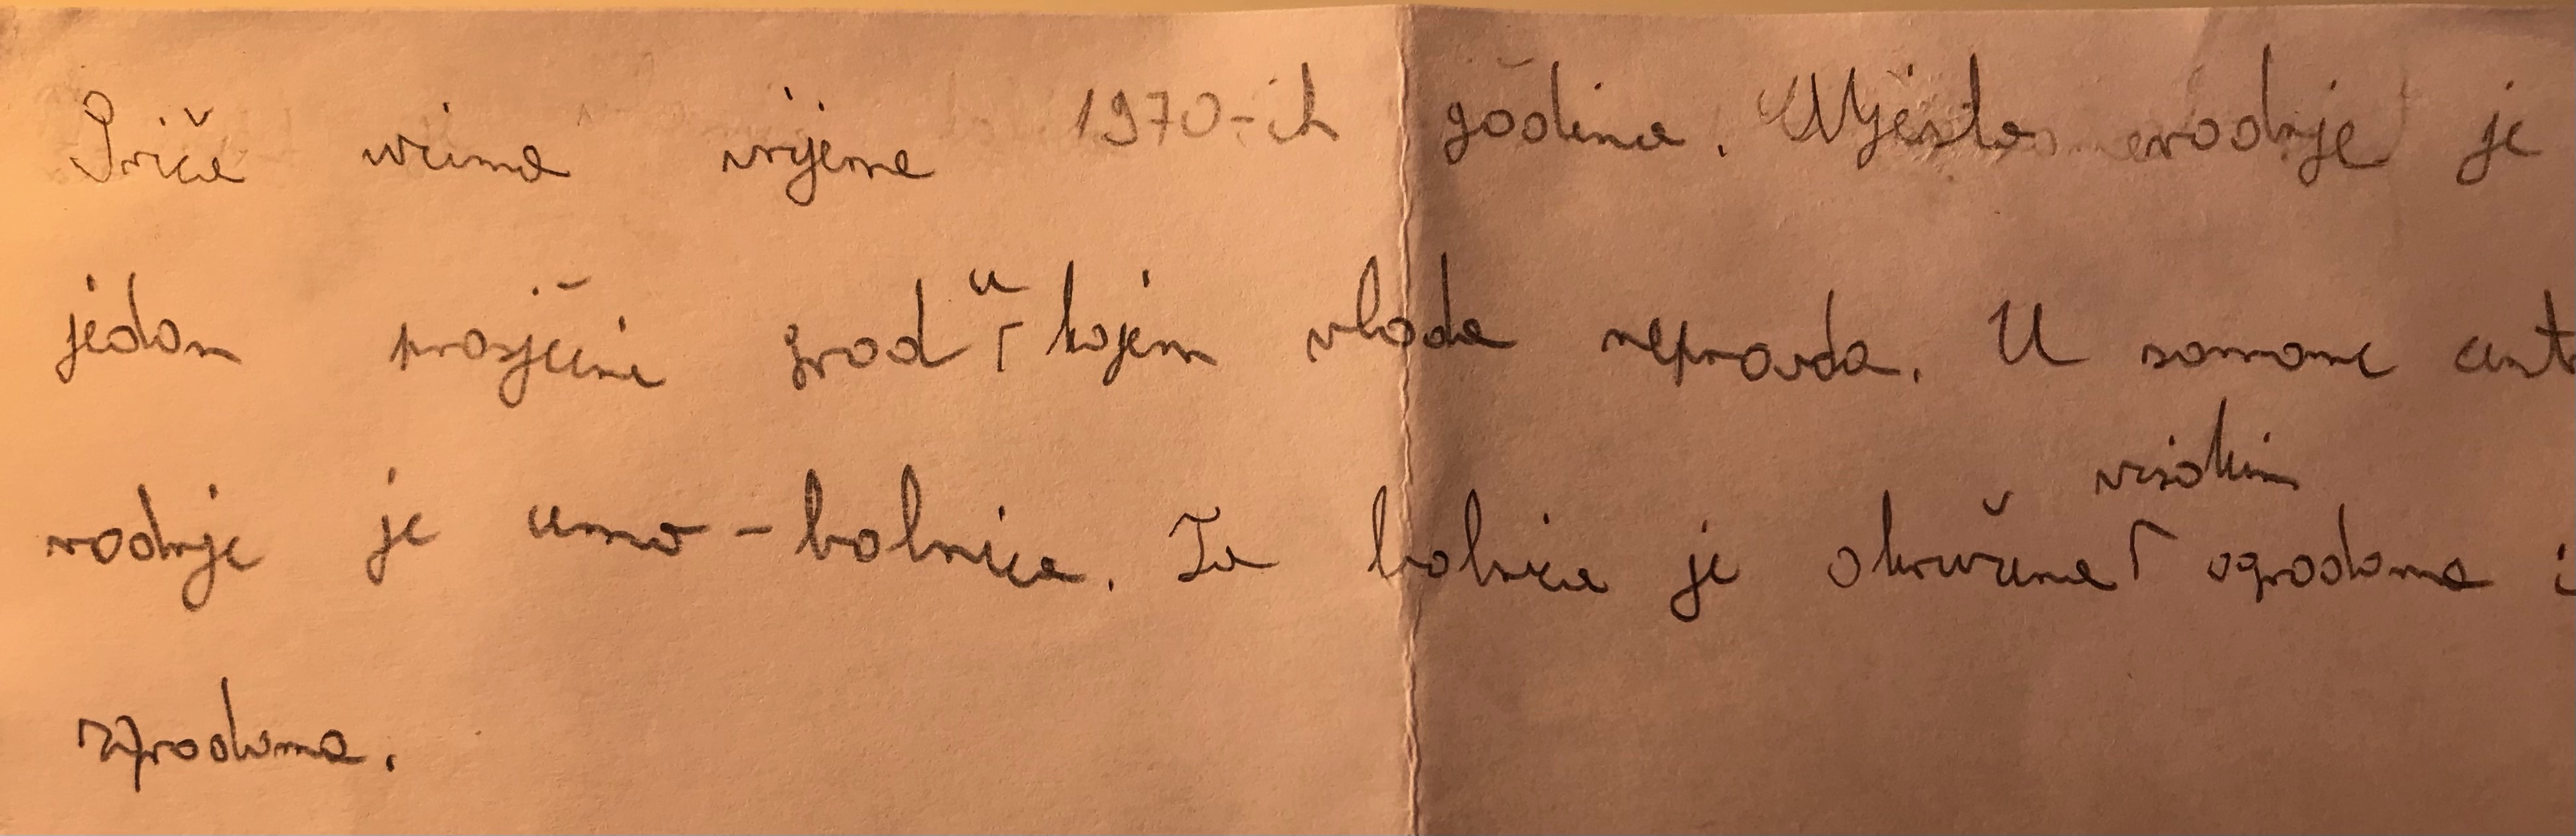 Priča vrijeme 1970-ih godina. Mjesto radnje je
jedan prosječni grad u kojem vlada nepravda. U samome cent
radnje je umo-bolnica. Ta bolnica je okružena visokim ogradama i
zgradama.